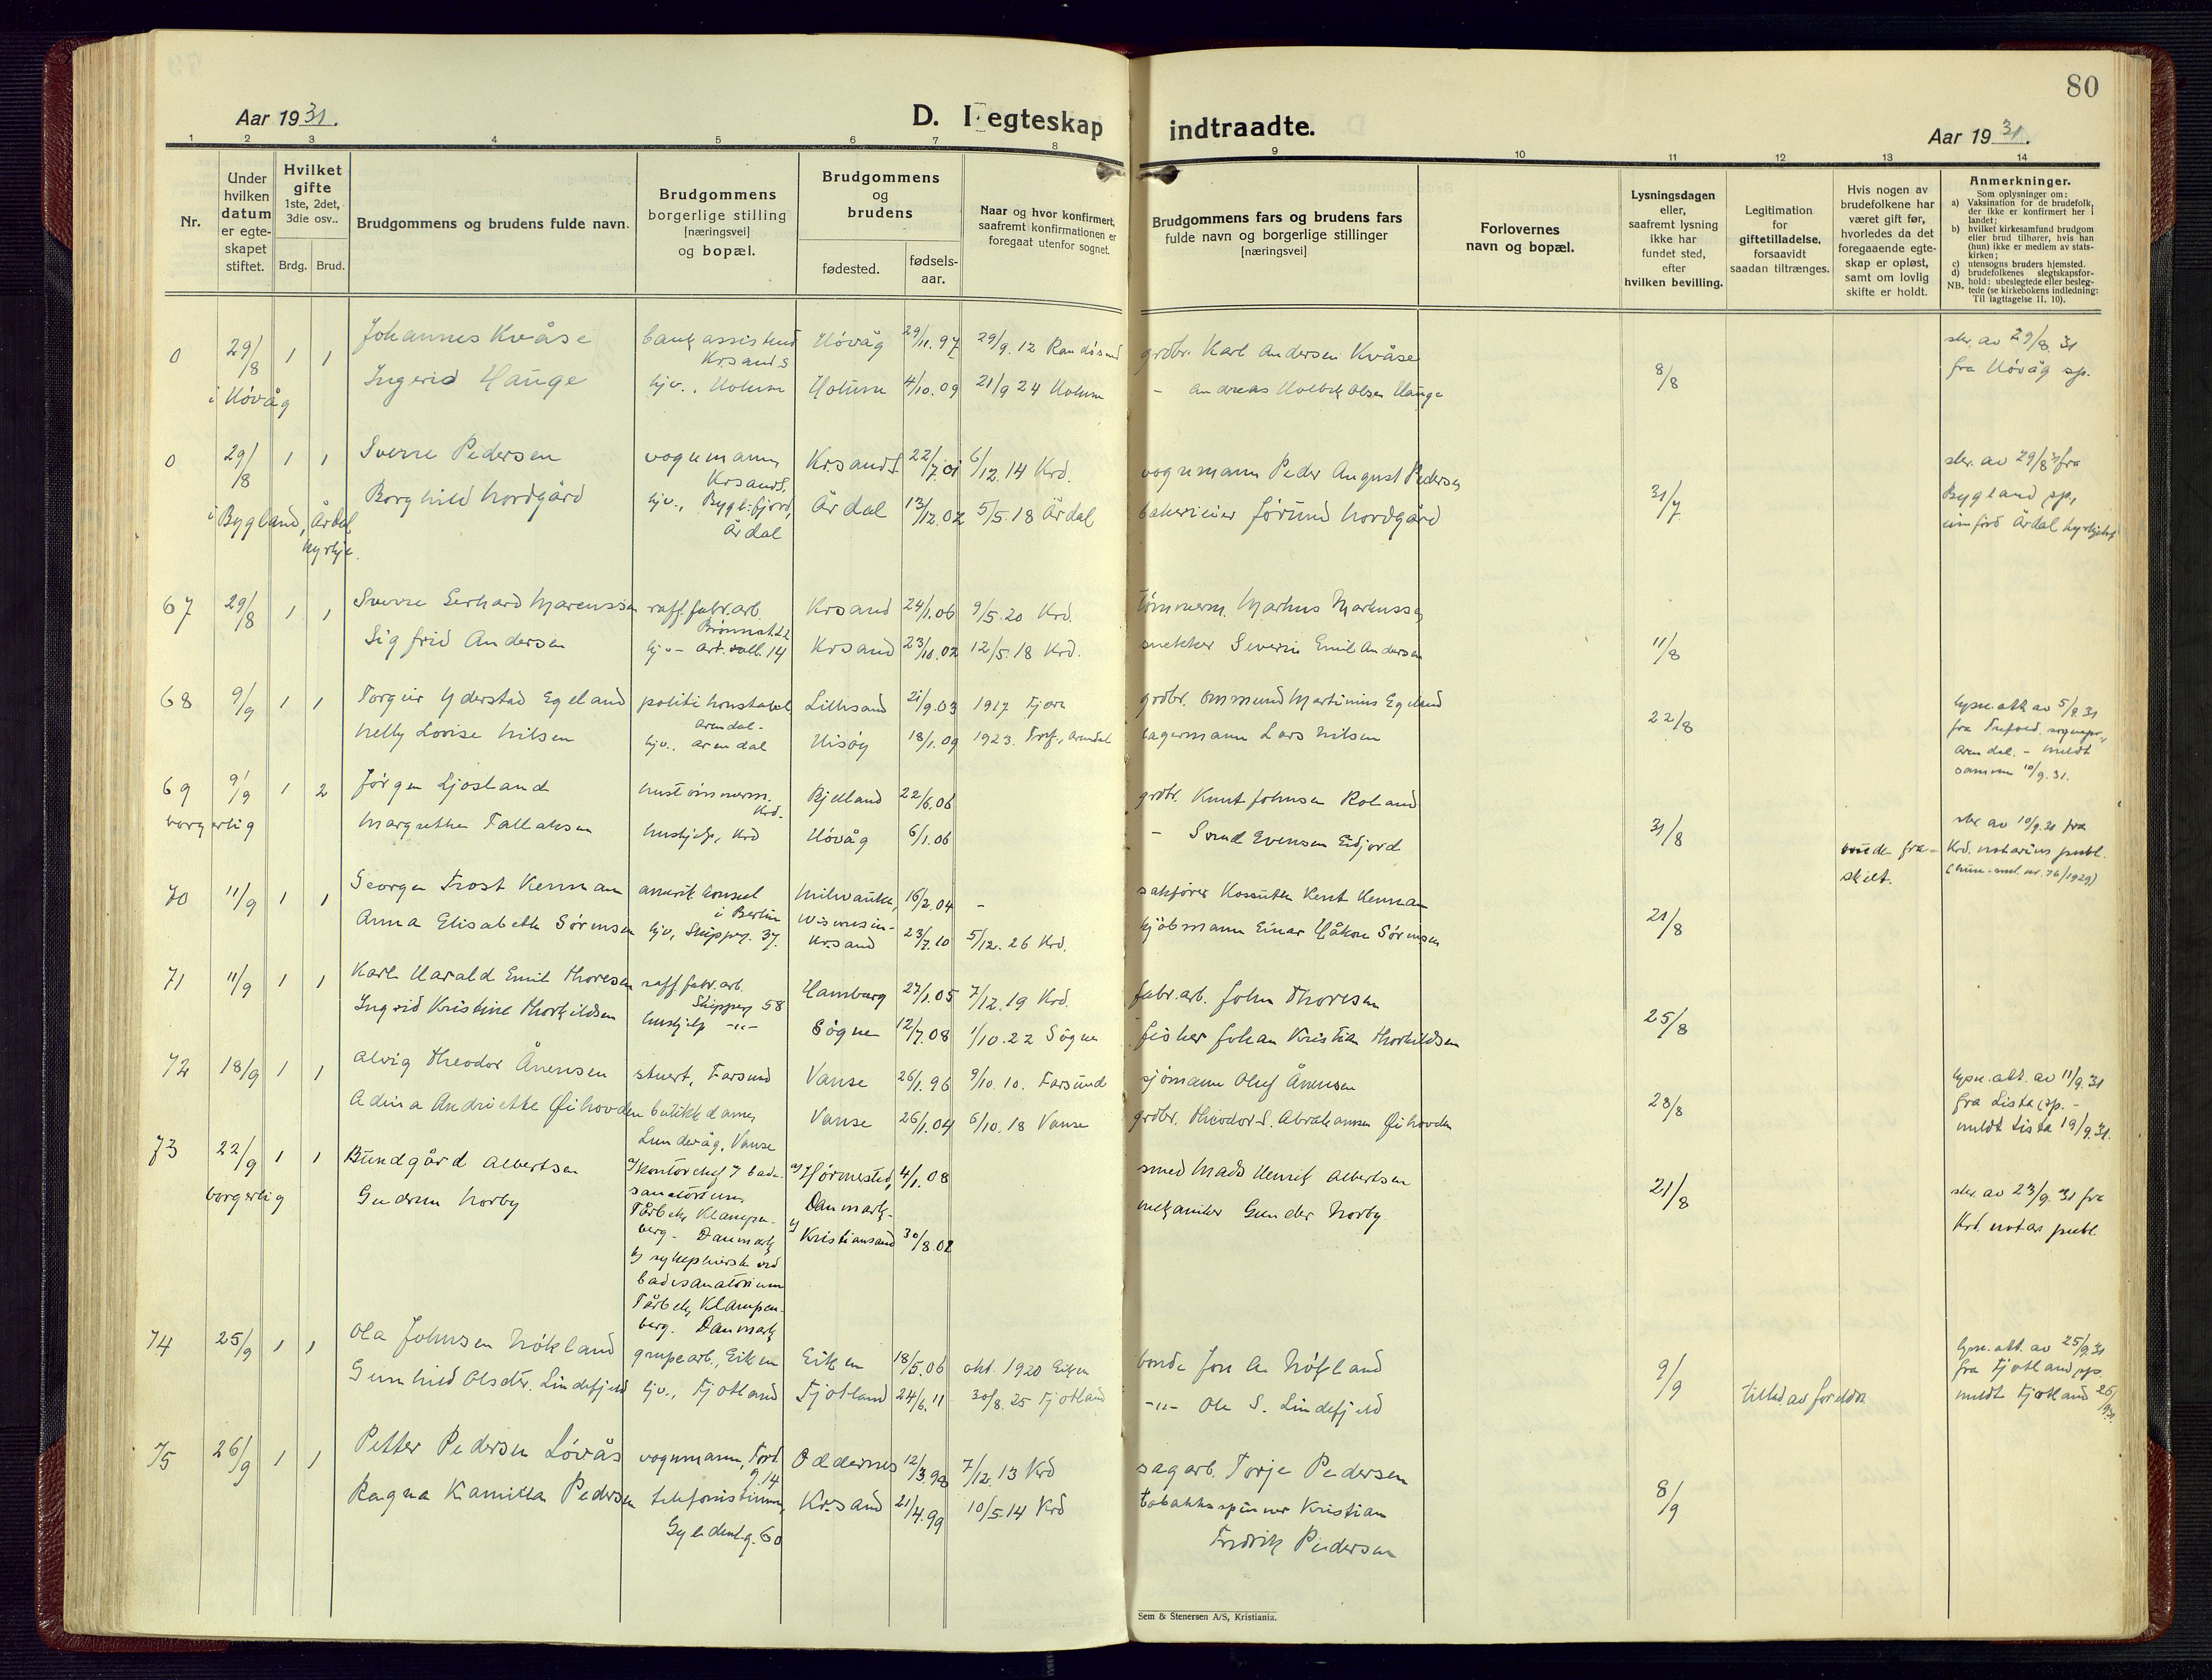 80
Aar 1931.
D. I egteskap indtraadte.
Aar 1931.
1 2 3 4 5 6 7 8 9 10 11 12 13 14
Nr.
Under hvilken datum er egte- skapet stiftet.
Hvilket gifte 1ste, 2det, 3die osv..
Brdg. Brud.
Brudgommens og brudens fulde navn.
Brudgommens borgerlige stilling [næringsvei] og bopæl.
Brudgommens og brudens
fødested. fødsels- aar.
Naar og hvor konfirmert, saafremt konfirmationen er foregaat utenfor sognet.
Brudgommens fars og brudens fars fulde navn og borgerlige stillinger [næringsvei]
Forlovernes navn og bopæl.
Lysningsdagen eller, saafremt lysning ikke har fundet sted, efter hvilken bevilling.
Legitimation for giftetilladelse, forsaavidt saadan tiltrænges.
Hvis nogen av brudefolkene har været gift før, hvorledes da det foregaaende egte- skap er opløst, samt om lovlig skifte er holdt.
Anmerkninger.
Som oplysninger om:
a) Vaksination for de brudefolk, der ikke er konfirmert her i landet;
b) hvilket kirkesamfund brudgom eller brud tilhører, hvis han (hun) ikke er medlem av stats- kirken;
c) utensogns bruders hjemsted.
d) brudefolkenes slegtskapsfor- hold: ubeslegtede eller besleg- tede (se kirkebokens indledning: Til iagttagelse II, 10).
NB.
0 29/8 1 1 Johannes Kvåse bankassistent Krsand S Høvåg 29/11.97 29/9.12 Randøsund grdbr. Karl Andersen Kvåse 8/8 skr. av 29/8.31
i Høvåg Ingerid Hauge hjv., Holum Holum 4/10.09 21/9 24 Holum – Andreas Olsen Hauge fra Høvåg sp.
0 29/8 1 1 Sverre Pedersen vognmann, Krsand S. Krsand S. 22/7.01 6/12.14 Krd. vognmann Peder August Pedersen 31/7 skr. av 29/8 31 fra
i Bygland, Årdal kyrkje. Borghild Nordgård hjv., Bygl.fjord, Årdal Årdal 13/12.02 5/5.18 Årdal Jørund Nordgård Bygland sp.,
Årdal
67 29/8 1 1 Sverre Gerhard Marcussen raff.fabr.arb. Krsand 24/1.06 9/5.20 Krd. tømmerm. Markus Markussen 11/8
Sigfrid Andersen hjv – 14 Krsand 23/10.02 12/5.18 Krd. snekker Severin Emil Andersen
68 9/9 1 1 Torgeir Yderstad Egeland politikonstabel Arendal. Lillesand 21/9.03 1917 Fjære grdbr. Ommund Martinius Egeland 22/8 lysn.att. av 5/9.31
Nelly Lovise Nilsen hjv., Arendal Hisøy 18/1.09 1923. Tref., Arendal lagermann Lars Nilsen fra Trefold. sognepr.,
Arendal. – meldt
samme 10/9.31.
69 9/9 1 2 Jørgen Ljosland hustømmerm. Krd. Bjelland 22/6.06 grdbr. Knut Johnsen Roland 31/8 skr av 10/9.31 fra
borgerlig Margrethe Tallaksen hushjelp, Krd Høvåg 6/1.06 – Evensen Eidjord fra- skilt. Krd. notarius publ.
70 11/9 1 1 George Frost Kennan amerik. konsul i Berlin Milwaukee, Wisconsin- 16/2.04 – sakfører Kossuth Kent Kennan 21/8
Anna Elisabeth Sørensen hjv, Skipperg. 37. Krsand 23/7.10 5/12.26 Krd. kjøbmann Einar Håkon Sørensen
71 11/9 1 1 Karl Harald Emil Thoresen raff.fabr.arb. Skipperg 58 Hamburg 27/1.05 7/12.19 Krd. fabr.arb. John Thoresen 25/8
Ingrid Kristine Thorkildsen hushjelp –"– Søgne 12/7.08 1/10.22 Søgne fisker Johan Kristian Thorkildsen
72 18/9 1 1 Alvig Theodor Ånensen stuert, Farsund Vanse 26/1.96 9/10.10. Farsund sjømann Oluf Ånensen 28/8 lysn.att. av 11/9.31
Adina Andriette Øihovden butikkdame, Lundevåg, Vanse Vanse 26/1.04 6/10.18 Vanse grdbr. Theodor S. Abrahamsen Øihovden fra Lista sp. –
meldt Lista 19/9.31.
73 22/9 1 1 Bundgård Albertsen a) kontorchef v bade- sanatorium Tårbek, Klampen- berg. Danmark a) Hørmested, Danmark. 4/1.08 smed Mads Henrik Albertsen 21/8 skr. av 23/9.31 fra
borgerlig Gudrun Norby b) sykepleierske ved badesanatorium Tårbek, Klampen- berg. Danmark b) Kristiansand 30/8.02 mekaniker Gunder Norby Krd. notar publ.
74 25/9 1 1 Ola Johnsen Nökland grupearb., Eiken Eiken 18/5.06 okt. 1920 Eiken bonde Jon A. Nökland 9/9 lysn.att. av 25/9.31
Gunhild Olsdtr. Lindefjeld hjv., Fjotland Fjotland 24/6.11 30/8.25 Fjotland –"– Ole S. Lindefjeld tillad. av foreldre fra Fjotland sp.
meldt Fjotland 26/9.31
75 26/9 1 1 Petter Pedersen Løvås vognmann, Oddernes 12/3.98 7/12.13 Krd sagarb. Torje Pedersen 8/9
Ragna Kamilla Pedersen telefonistinne, Gyldenl.g. 60 Krsand 21/4.99 10/5.14 Krd tobakksspinner Kristian
Fredrik Pedersen
Sem & Stenersen A/S, Kristiania.